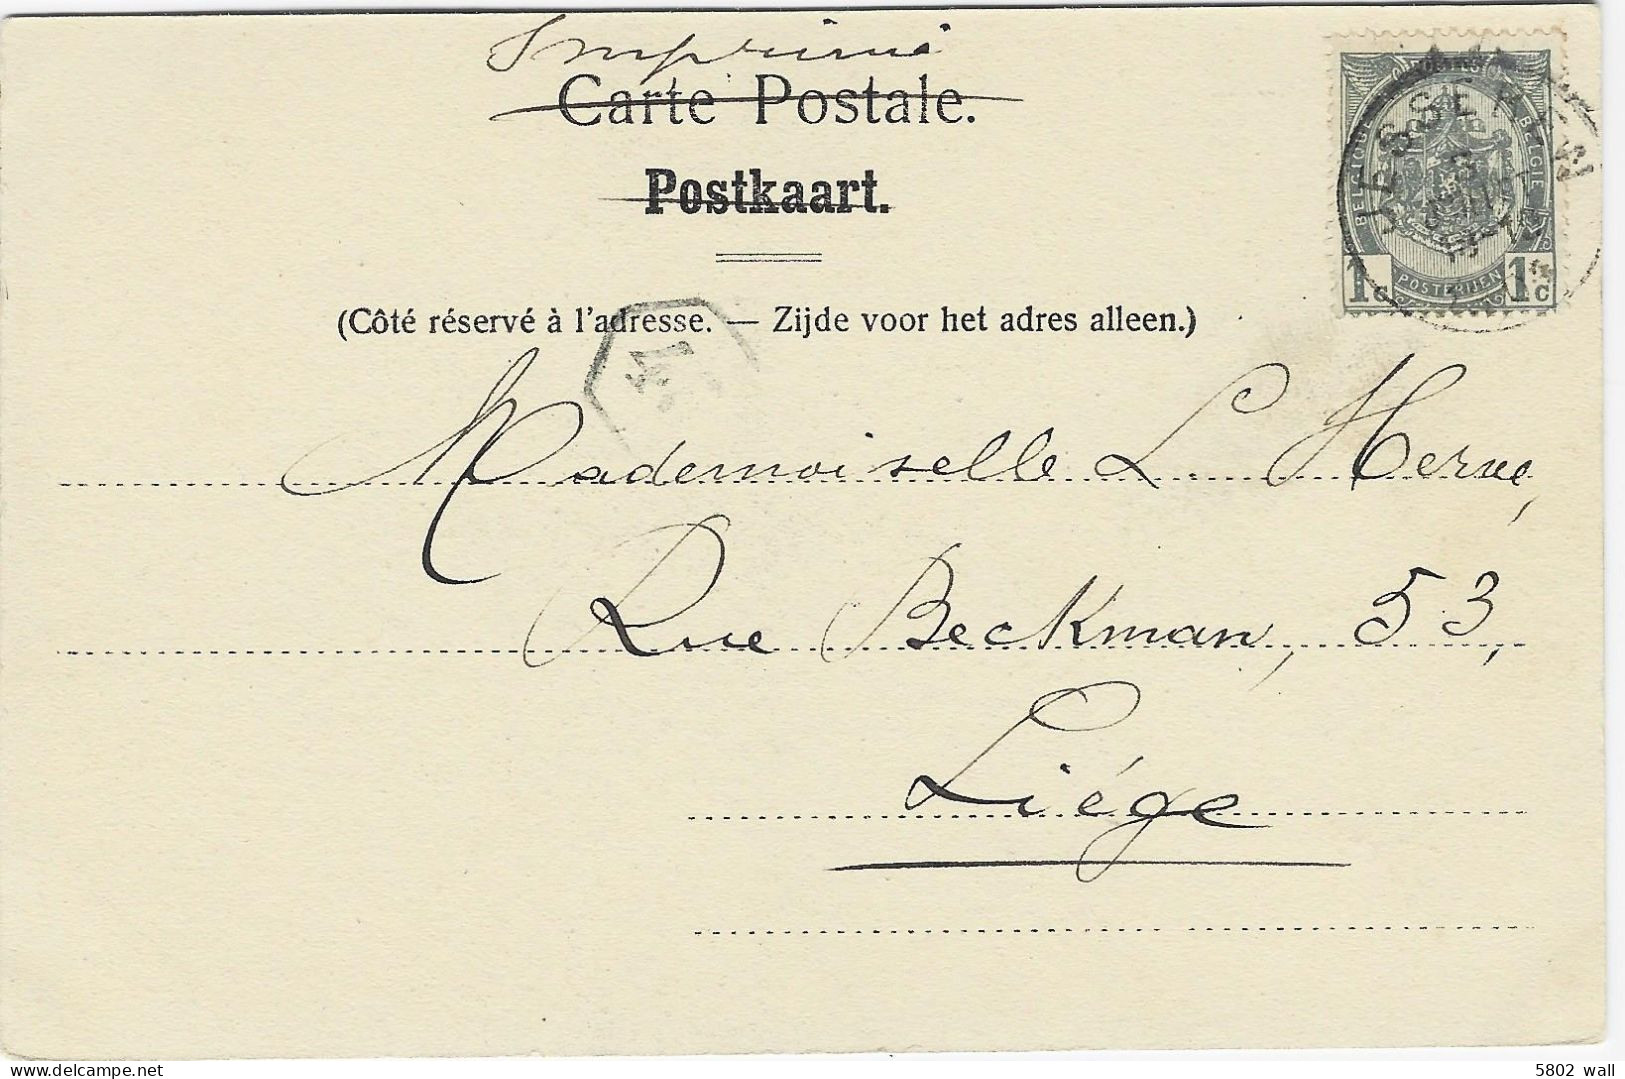 Imprimé
Carte Postale.
Postkaart.
(Côté réservé à l'adresse. — Zijde voor het adres alleen.)
BELGIQUE BELGIE
POSTERIJEN
1c 1c
Mademoiselle L. Herve,
Rue Beckman, 53,
Liége
5802 wall